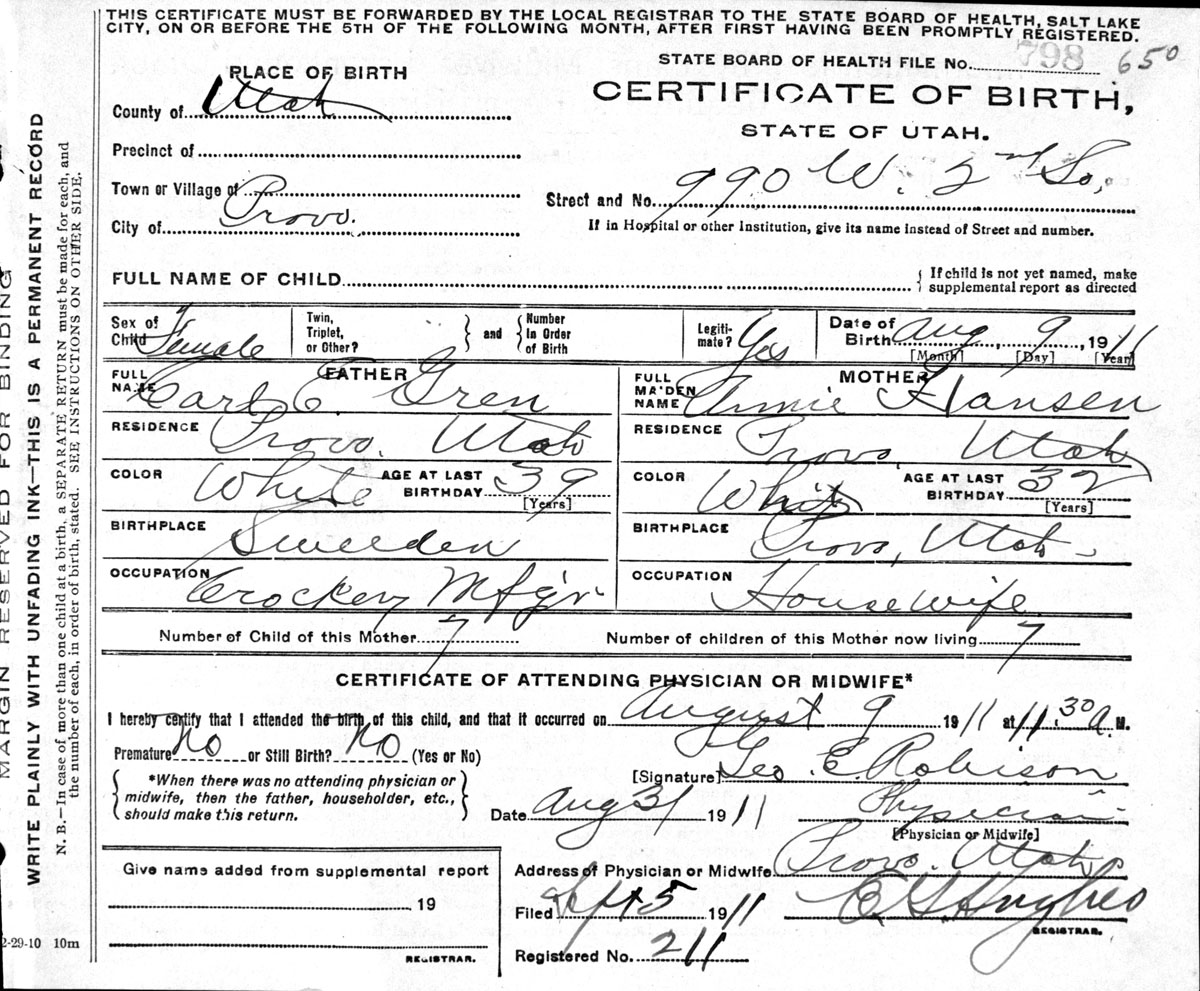 THIS CERTIFICATE MUST BE FORWARDED BY THE LOCAL REGISTRAR TO THE STATE BOARD OF HEALTH, SALT LAKE
CITY, ON OR BEFORE THE 5TH OF THE FOLLOWING MONTH, AFTER FIRST HAVING BEEN PROMPTLY REGISTERED.
STATE BOARD OF HEALTH FILE No. 798 650
PLACE OF BIRTH
CERTIFICATE OF BIRTH,
County of Utah
STATE OF UTAH.
Precinct of
Town or Village of
Street and No. 990 W. 2nd So.
City of Provo.
If in Hospital or other Institution, give its name instead of Street and number.
FULL NAME OF CHILD { If child is not yet named, make
supplemental report as directed
Sex of Child Female Twin, Triplet, or Other? } and { Number In Order of Birth Legiti-mate? Yes Date of Birth Aug 9, 1911
[Month] [Day] [Year]
FATHER MOTHER
FULL NAME Carl E. Gren FULL MAIDEN NAME Annie Hansen
RESIDENCE Provo, Utah RESIDENCE Provo, Utah
COLOR White AGE AT LAST BIRTHDAY 39 [Years] COLOR White AGE AT LAST BIRTHDAY 32 [Years]
BIRTHPLACE Sweeden BIRTHPLACE Provo, Utah
OCCUPATION Crockery Mfgr OCCUPATION Housewife
Number of Child of this Mother 7 Number of children of this Mother now living 7
CERTIFICATE OF ATTENDING PHYSICIAN OR MIDWIFE*
I hereby certify that I attended the birth of this child, and that it occurred on August 9 1911 at 11.30 A. M.
Premature No or Still Birth? No (Yes or No)
*When there was no attending physician or
midwife, then the father, householder, etc.,
should make this return.
[Signature] Geo. E. Robison
Date Aug 31 1911 Physician
[Physician or Midwife]
Address of Physician or Midwife Provo. Utah
Give name added from supplemental report
19
REGISTRAR.
Filed Sept 5 1911 E G Hughes
REGISTRAR.
Registered No. 211
2-29-10 10m
MARGIN RESERVED FOR BINDING
WRITE PLAINLY WITH UNFADING INK—THIS IS A PERMANENT RECORD
N. B.—In case of more than one child at a birth, a SEPARATE RETURN must be made for each, and
the number of each, in order of birth, stated. SEE INSTRUCTIONS ON OTHER SIDE.